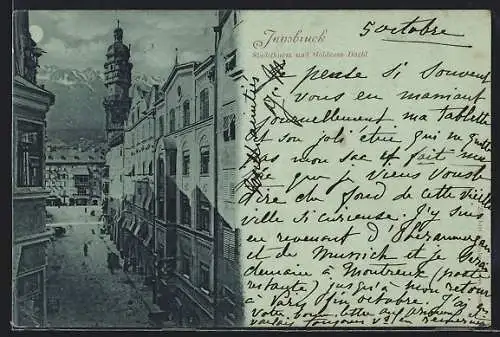 Innsbruck
Stadtthurm und Goldenes Dachl
5 octobre
Je pense si souvent
à vous en maniant
journellement ma tablette
et son joli étui, qui ne quitte
pas mon sac et fait
que je viens vous
dire du fond de cette vieille
ville si curieuse. J'y suis
en revenant d'Oberammergau
et du Munich et je serai
demain à Montreux (poste
restante) jusqu'à mon retour
à fin octobre. J'ai
votre bonne lettre
toujours